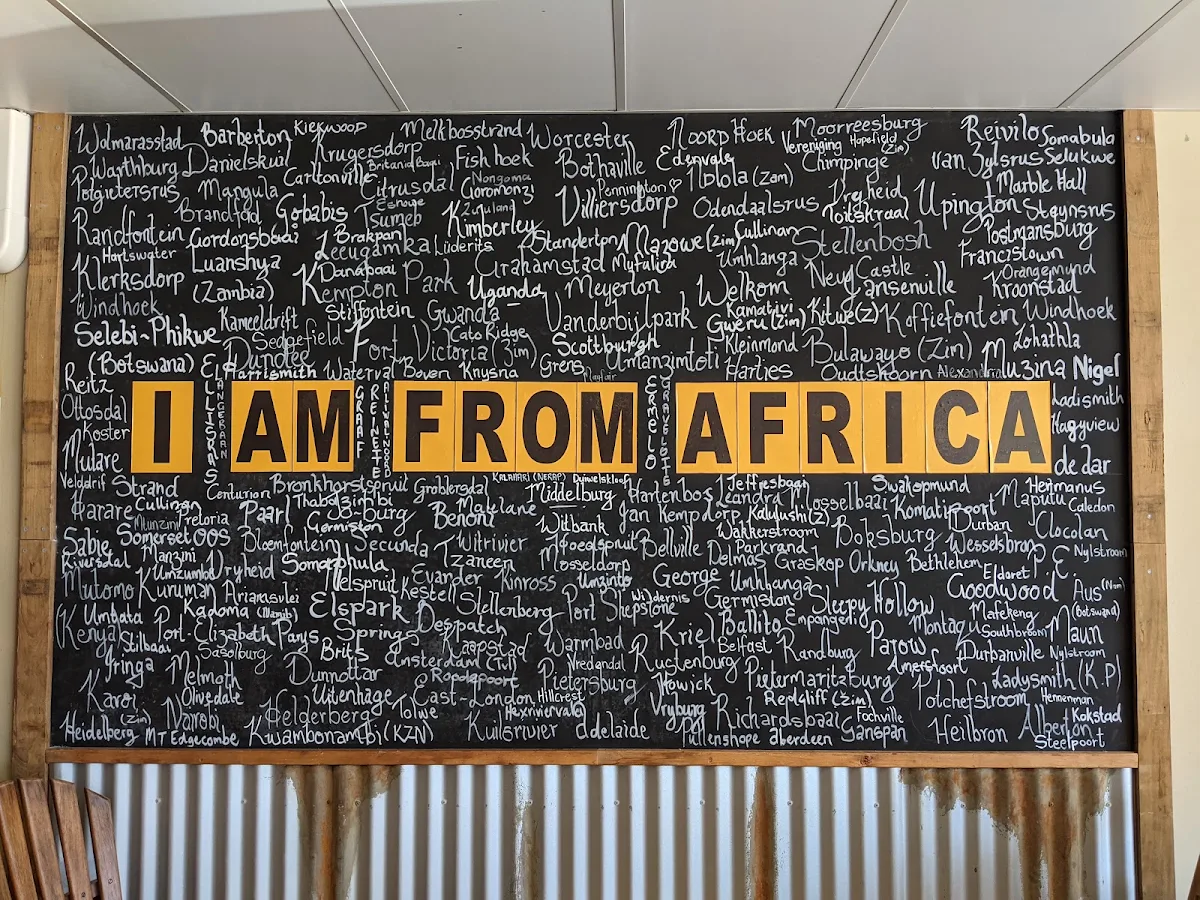 Wolmarasstad Barberton Kiekwood Melkbosstrand Worcester Noord Hoek Moorreesburg Reivilo Somabula
Warthburg Danielskuil Krugersdorp Fish hoek Bothaville Edenvale Vereniging Hopefield (Zim) Chimpinge van Zylsrus Selukwe
Potgietersrus Mangula Carltonville Citrusdal Nongoma Pennington Ndola (Zam) Vryheid Marble Hall
Brandfort Gobabis Eshowe Tsumeb Gromonzi Zululand Villiersdorp Odendaalsrus Toitskraal Upington Steynsrus
Randfontein Gordonsbaai Brakpan Kimberley Standerton Mazowe (zim) Cullinan Stellenbosh Postmansburg
Hartswater Luanshya Leeugamka Lüderits Grahamstad Myfulira Umhlanga Francistown
Klerksdorp (Zambia) Danabaai Kempton Park Uganda Meyerton Welkom New Castle Jansenville Orangemund Kroonstad
Windhoek Kameeldrift Stilfontein Gwanda Vanderbijlpark Kamativi Gweru (Zim) Kitwe (Z) Koffiefontein Windhoek
Selebi-Phikwe Sedgefield Fort Victoria (zim) Cato Ridge Scottburgh Kleinmond Bulawayo (Zim) Lohathla
(Botswana) Dundee Harrismith Waterval Boven Knysna Umanzimtoti Harties Oudtshoorn Alexandria Muzina Nigel
Reitz
Ottosdal
Koster
Mulare
ELLISRAS
LANGEBAAN
GRAAF REINETTE
ALIWAL NOORD
ERMELO
GRAVELOTTE
I AM FROM AFRICA
Ladismith
Hagyview
de dar
Velddrif Strand Centurion Bronkhorstspruit Groblersdal KALAHARI (NERAP) Duiwelskloof Middelburg Hartenbos Leandra Jeffresbaai Mosselbaai Swakopmund Hermanus
Harare Cullinan Paarl Thabazimbi Matelane Jan Kempdorp Kalulushi (z) Komatipoort Maputu Caledon
Munzini Pretoria Germiston Benoni Witbank Wakkerstroom Boksburg Durban Clocolan
Sabie Somerset OOS Bloemfontein Secunda Witrivier Hoedspruit Bellville Parkrand Wesselsbron P E Nylstroom
Riversdal Manzini Somabhula Tzaneen Mosseldorp Delmas Graskop Orkney Bethlehem
Mutomo Kuruman Umzumbi Vryheid Nelspruit Evander Kinross Umzinto George Umhlanga Eldoret Goodwood Aus (Nam)
Ariamsvlei Kestell Wildernis Germiston Sleepy Hollow
Umbata Kadoma Elspark Stellenberg Port Shepstone Ballito Empangeni Marekeng (Botswana)
Kenya Port-Elizabeth Parys Springs Despatch Kriel Montagu Southbroom Maun
Stilbaai Sasolburg Brits Kaapstad Warmbad Belfast Randburg Parow Durbanville Nylstroom
Iringa Melmoth Dunnottar Amsterdam (Tvl) Vredendal Rustenburg Pietermaritzburg Amersfoort Ladysmith (K.P)
Karoi Olivedale Uitenhage Roodepoort East-London Pietersburg Howick Redcliff (Zim) Potchefstroom Hennenman
(Zim) Nairobi Helderberg Tolwe Hillcrest Hexriviervalei Vryburg Richardsbaai Fochville Alberton Kokstad
Heidelberg MT Edgecombe Kwambonambi (KZN) Kuilsrivier Adelaide Pullenshope aberdeen Ganspan Heilbron Steelpoort